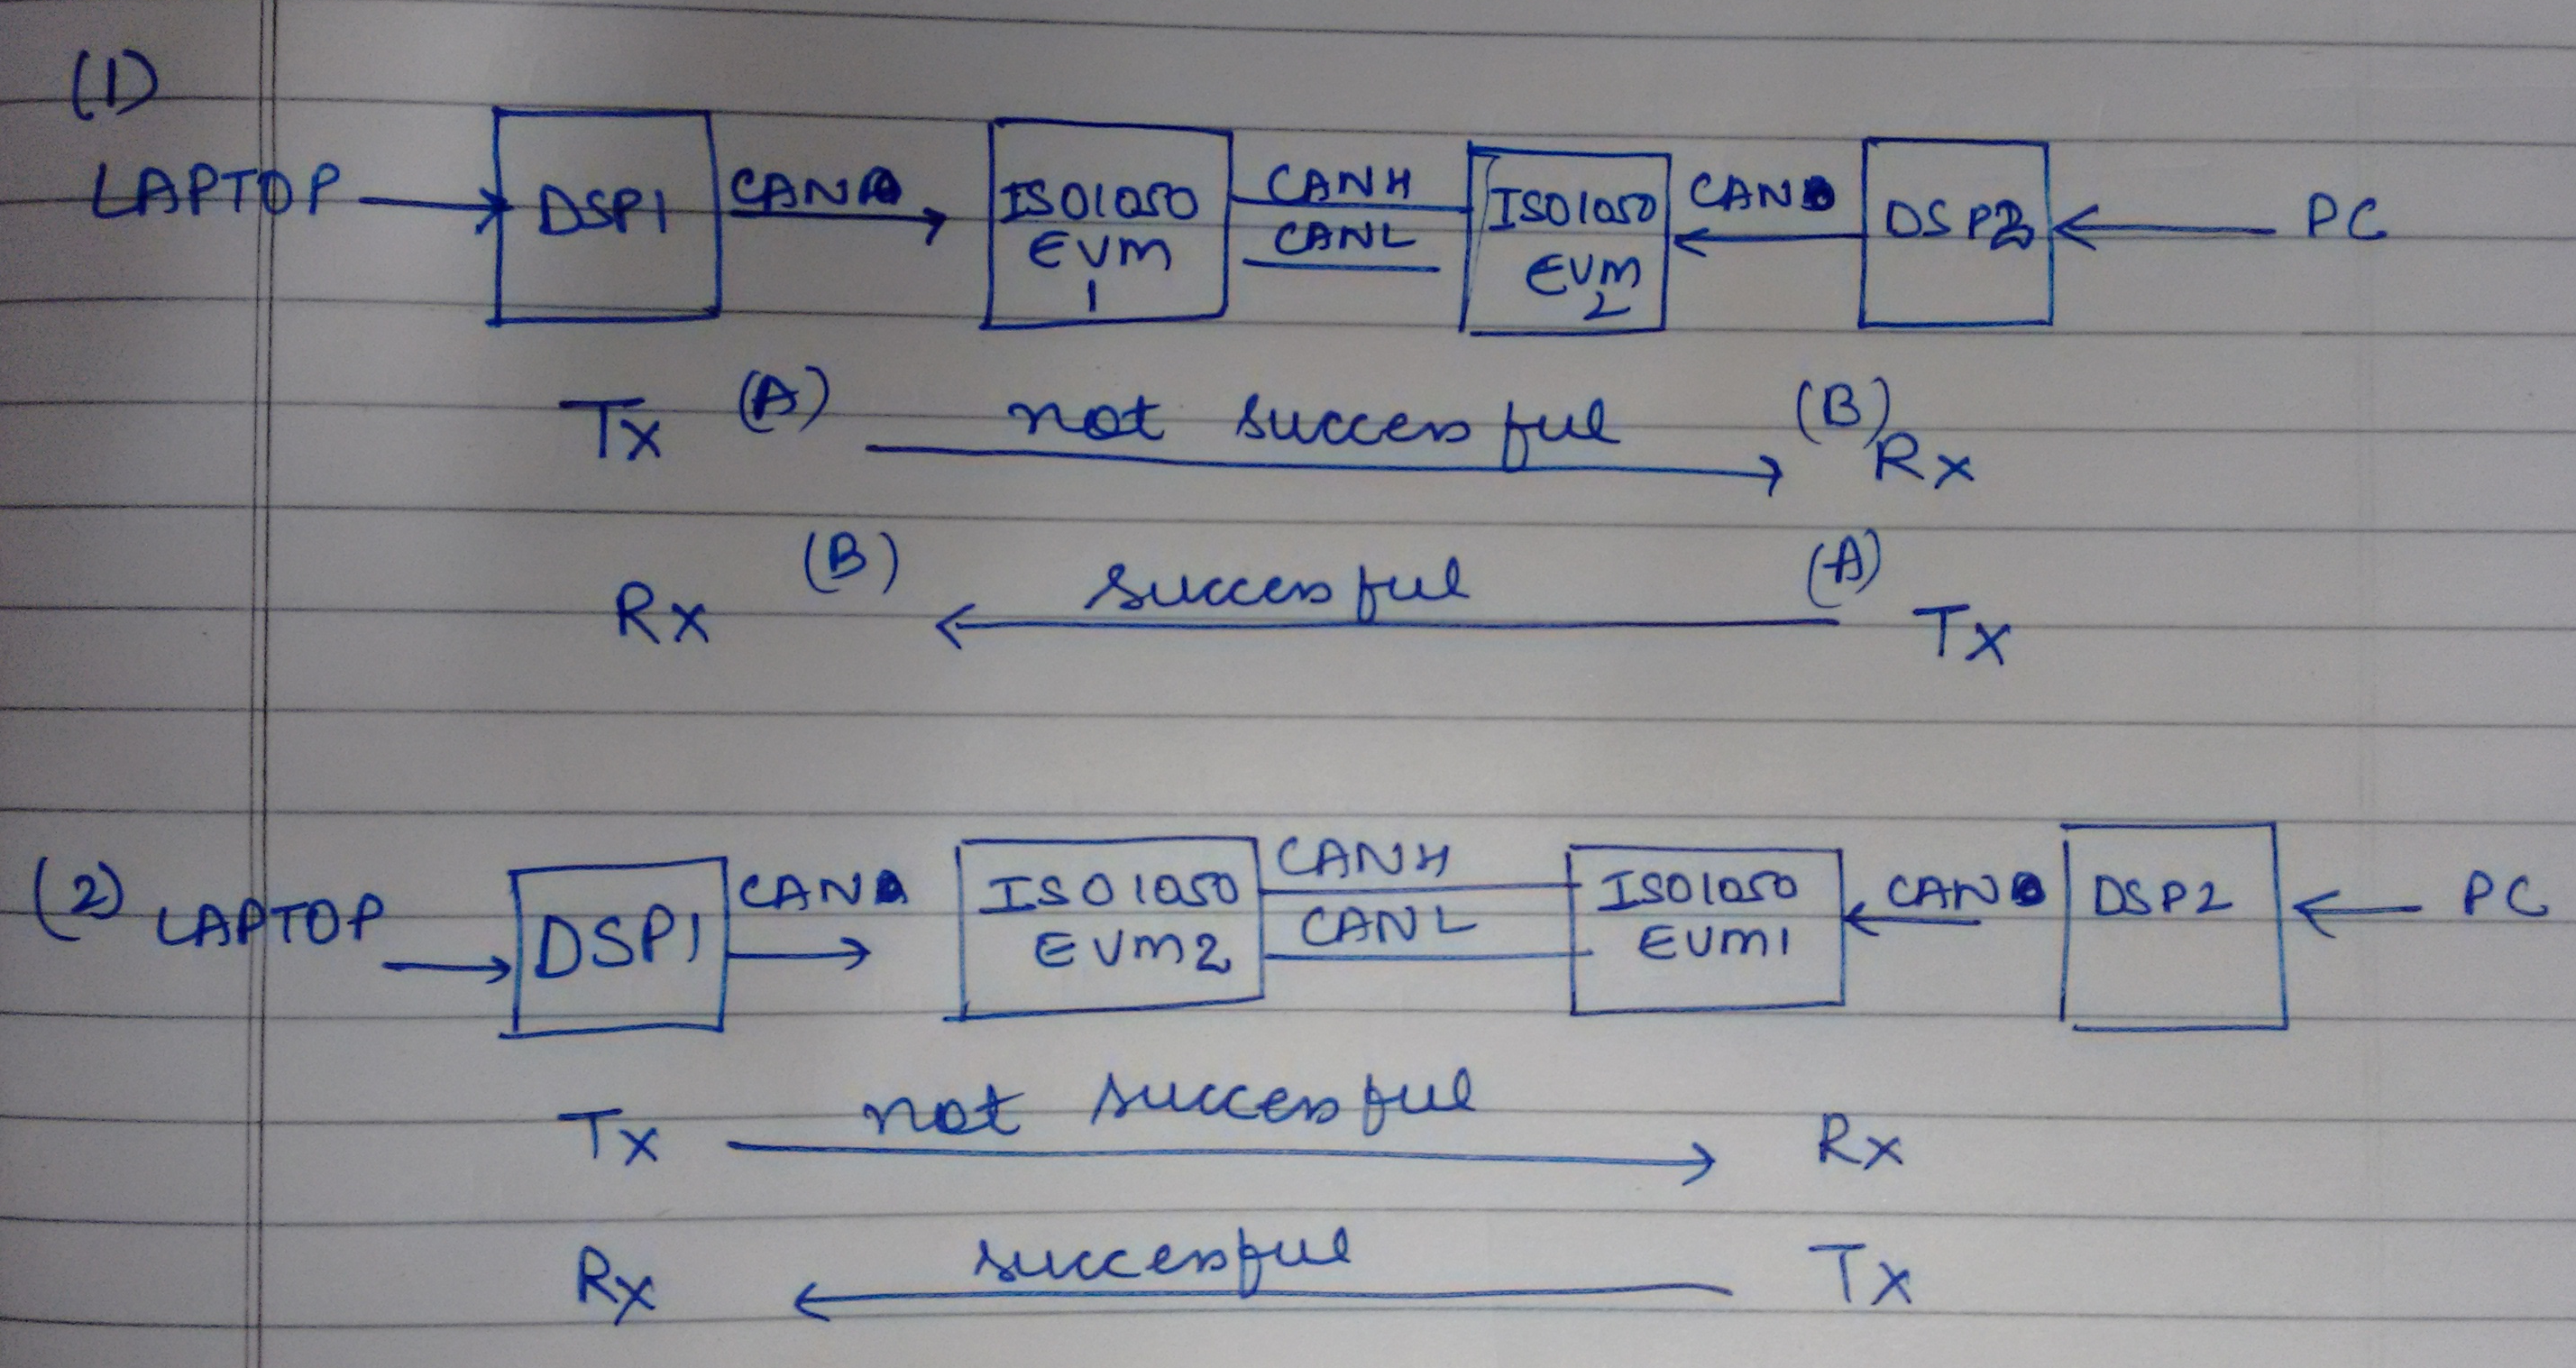 (1)
LAPTOP DSP1 CANA ISO1050 EVM 1 CANH CANL ISO1050 EVM 2 CAN DSP2 PC
Tx (A) not successful (B) Rx
Rx (B) successful (A) Tx
(2) LAPTOP DSP1 CANA ISO1050 EVM2 CANH CANL ISO1050 EVM1 CAN DSP2 PC
Tx not successful Rx
Rx successful Tx